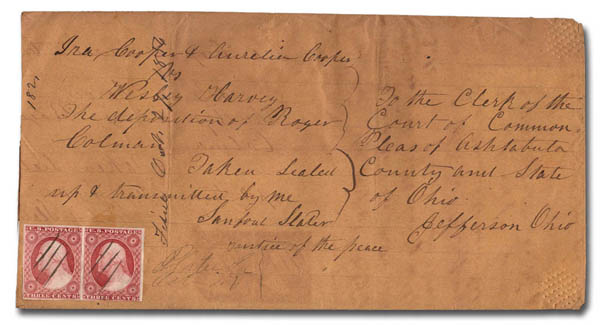 Ira Cooper & Aurelia Cooper
vs
Wesley Harvey
The deposition of Roger
Colman
Taken sealed
up & transmitted by me
Sanford Slater
Justice of the peace
To the Clerk of the
Court of Common
Pleas of Ashtabula
County and State
of Ohio
Jefferson Ohio
U.S. POSTAGE
THREE CENTS
U.S. POSTAGE
THREE CENTS